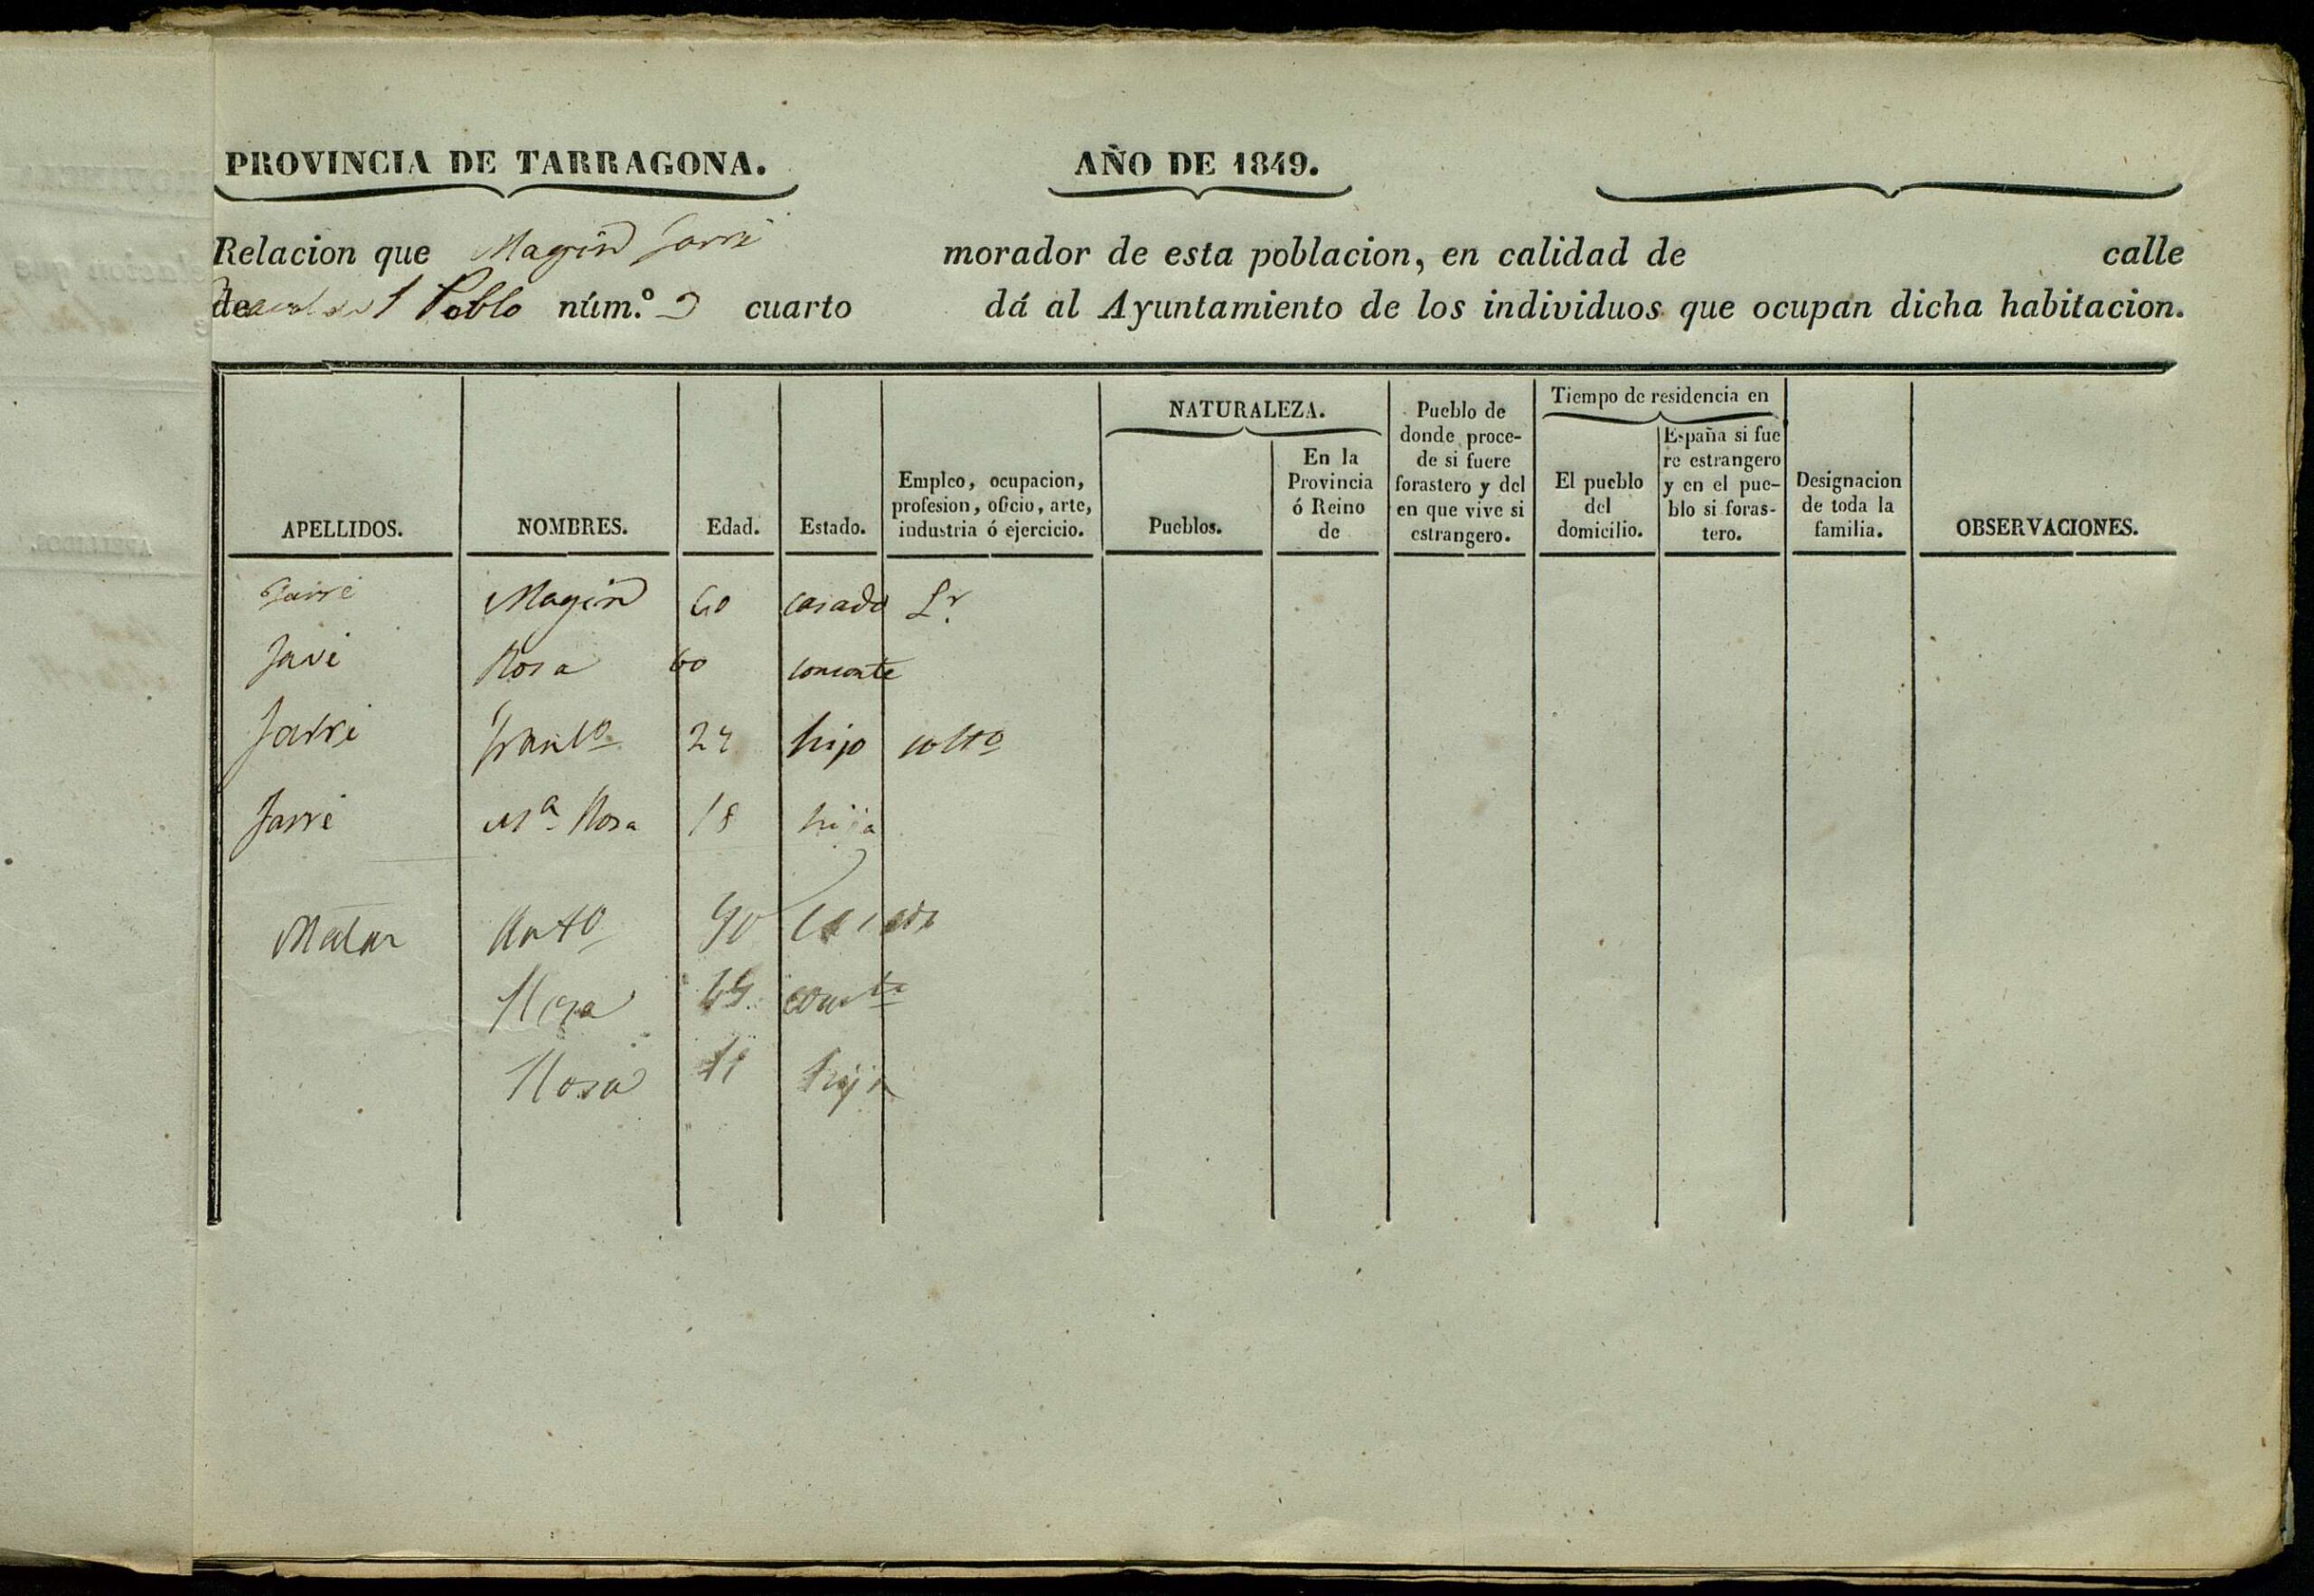 PROVINCIA DE TARRAGONA. AÑO DE 1849.
Relacion que Magin Jarri morador de esta poblacion, en calidad de calle
de Pablo núm.º cuarto dá al Ayuntamiento de los individuos que ocupan dicha habitacion.
APELLIDOS.
NOMBRES.
Edad.
Estado.
Empleo, ocupacion,
profesion, oficio, arte,
industria ó ejercicio.
NATURALEZA.
Pueblos.
En la
Provincia
ó Reino
de
Pueblo de
donde proce-
de si fuere
forastero y del
en que vive si
estrangero.
Tiempo de residencia en
El pueblo
del
domicilio.
España si fue
re estrangero
y en el pue-
blo si foras-
tero.
Designacion
de toda la
familia.
OBSERVACIONES.
Jarri Magin 60 casado Lr.
Rosa 60 consorte
Jarri Franco 24 hijo solto
Jarri Mª Rosa 18 hija
Anto casado
Rosa
Rosa 11 hija